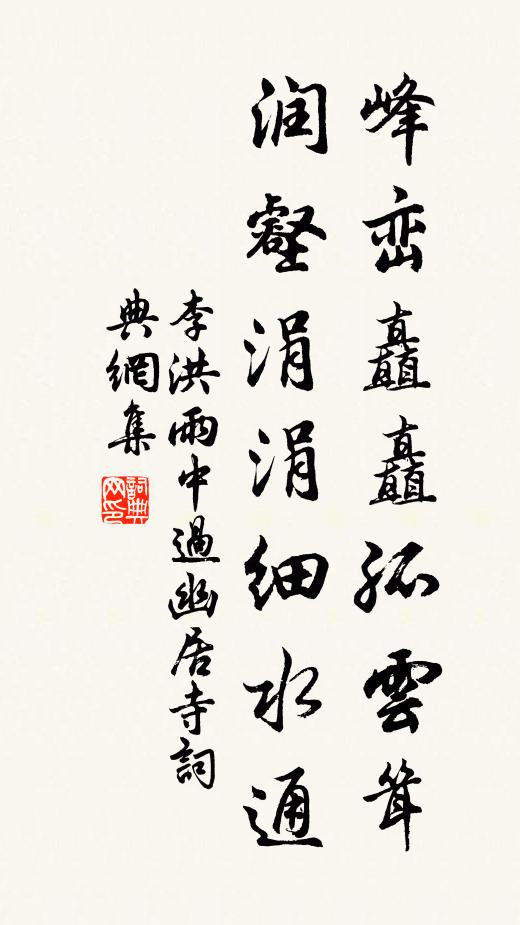 峰峦矗矗孤雲耸
润壑涓涓细水通
李洪雨中過幽居寺詞
典網集
詞典
网印